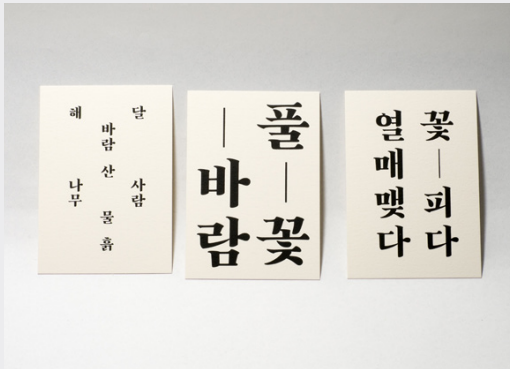 달 사람
바람 산 물 흙
해 나무
풀—꽃
—바람
꽃—피다
열매맺다